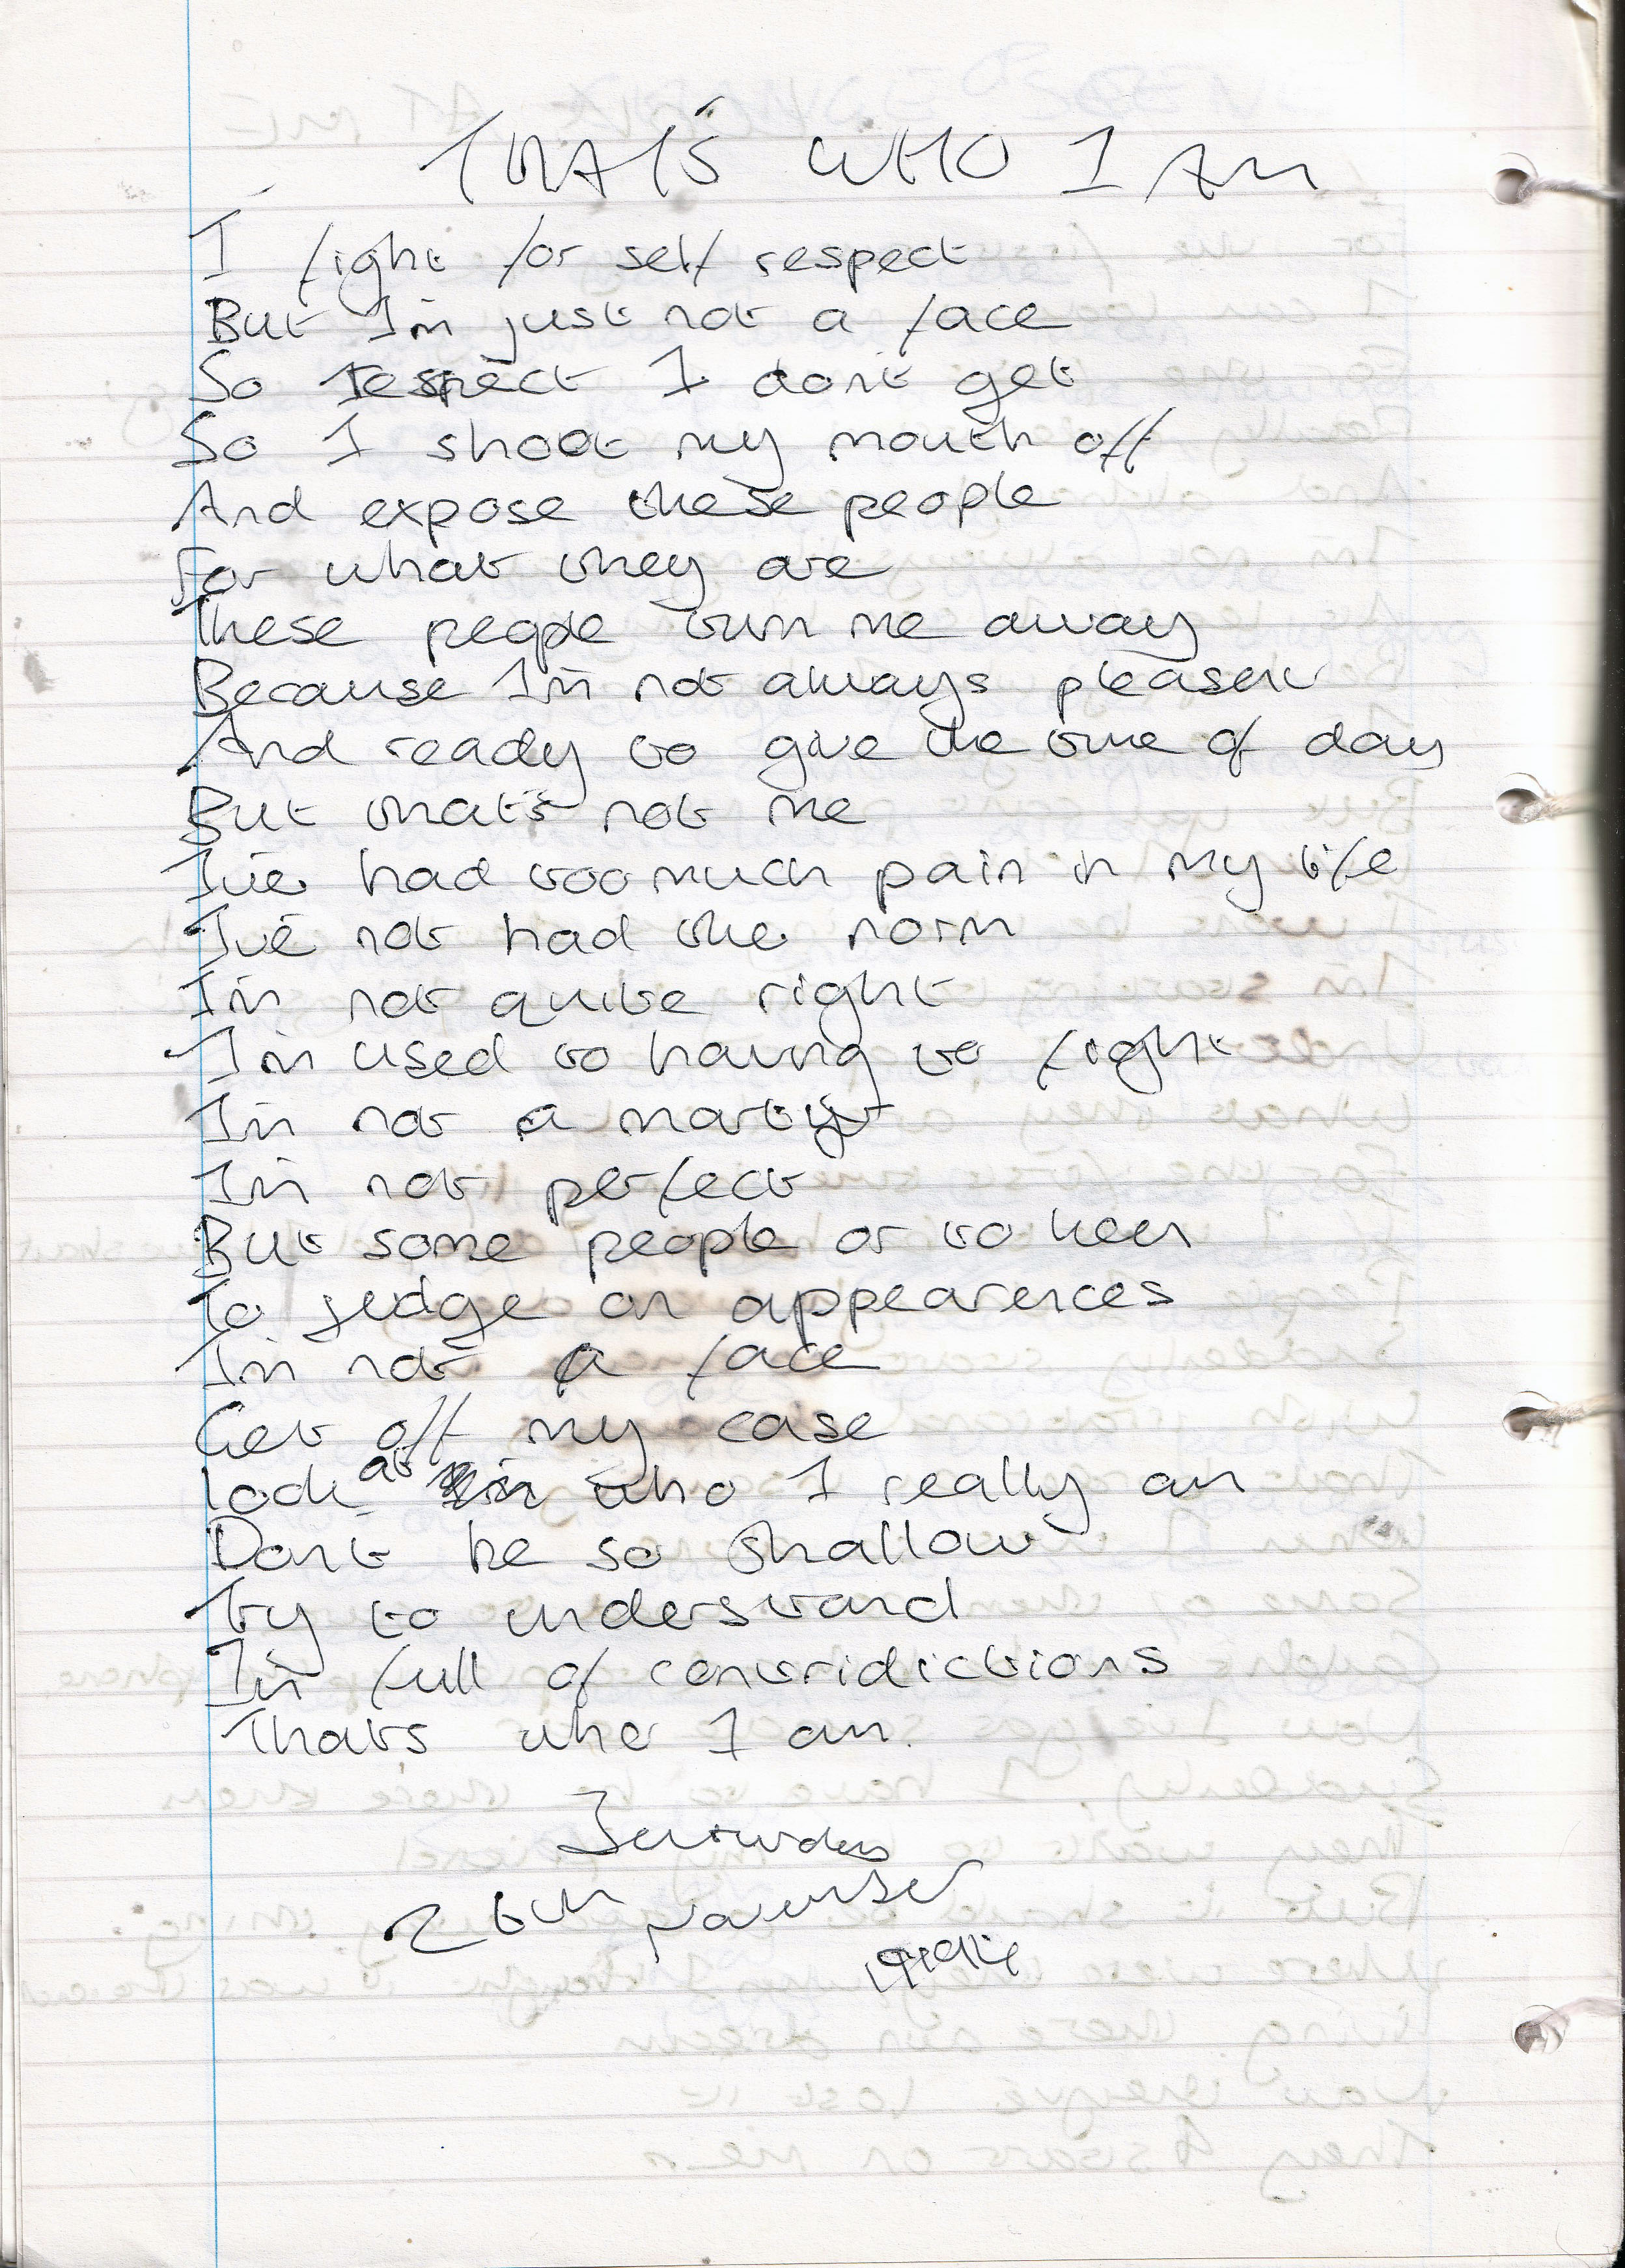 THAT'S WHO I AM
I fight for self respect
But I'm just not a face
So respect I don't get
So I shoot my mouth off
And expose these people
For what they are
These people turn me away
Because I'm not always pleasent
And ready to give the time of day
But that's not me
I've had too much pain in my life
I've not had the norm
I'm not quite right
I'm used to having to fight
I'm not a martyr
I'm not perfect
But some people or to keen
To judge on appearences
I'm not a face
Get off my case
Look at who I really am
Don't be so shallow
Try to understand
I'm full of contridictions
Thats who I am.
26th November